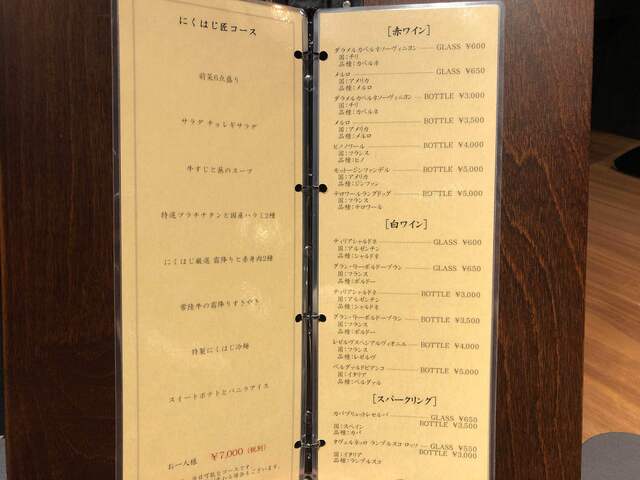 にくはじ匠コース
前菜6点盛り
サラダ チョレギサラダ
牛すじと蕪のスープ
特選プラチナタンと国産ハラミ2種
にくはじ厳選 霜降りと赤身肉2種
常陸牛の霜降りすきやき
特製にくはじ冷麺
スイートポテトとバニラアイス
お一人様 ¥7,000 (税別)
[赤ワイン]
ダラメルカベルネソーヴィニヨン GLASS ¥600
国：チリ
品種：カベルネ
メルロ GLASS ¥650
国：アメリカ
品種：メルロ
ダラメルカベルネソーヴィニヨン BOTTLE ¥3,000
国：チリ
品種：カベルネ
メルロ BOTTLE ¥3,500
国：アメリカ
品種：メルロ
ピノノワール BOTTLE ¥4,000
国：フランス
品種：ピノ
モットージンファンデル BOTTLE ¥5,000
国：アメリカ
品種：ジンファン
テロワールラングドッグ BOTTLE ¥5,000
国：フランス
品種：テロワール
[白ワイン]
ティリアシャルドネ GLASS ¥600
国：アルゼンチン
品種：シャルドネ
グラン・ラーボルドーブラン GLASS ¥650
国：フランス
品種：ボルドー
ティリアシャルドネ BOTTLE ¥3,000
国：アルゼンチン
品種：シャルドネ
グラン・ラーボルドーブラン BOTTLE ¥3,500
国：フランス
品種：ボルドー
レゼルヴスペシアルヴィオニエ BOTTLE ¥4,000
国：フランス
品種：レゼルヴ
ベルグァルドビアンコ BOTTLE ¥5,000
国：イタリア
品種：ベルグァル
[スパークリング]
カバブリュットレセルバ GLASS ¥650
国：スペイン BOTTLE ¥3,500
品種：カバ
タヴェルネッロ ランブルスコ ロッソ GLASS ¥550
国：イタリア BOTTLE ¥3,000
品種：ランブルスコ